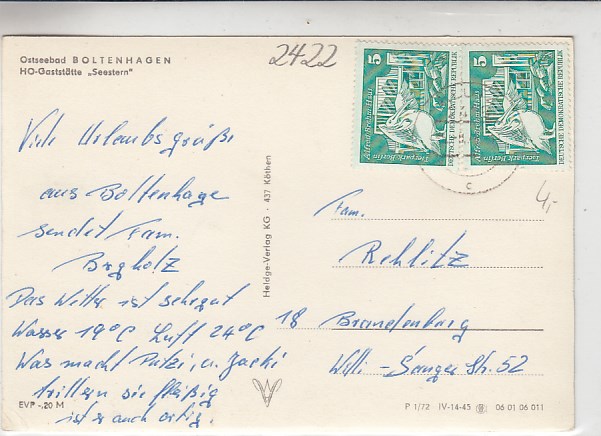 Ostseebad BOLTENHAGEN
HO-Gaststätte „Seestern"
2422
5
Tierpark Berlin
Alfred-Brehm-Haus
DEUTSCHE DEMOKRATISCHE REPUBLIK
5
Tierpark Berlin
Alfred-Brehm-Haus
DEUTSCHE DEMOKRATISCHE REPUBLIK
c
4,-
Viele Urlaubsgrüße
aus Boltenhage
sendet Fam.
Bergholz
Das Wetter ist sehr gut
Wasser 19°C Luft 24°C
Was macht Putzi, u. Jacki
trillern sie fleißig
ist er auch artig.
EVP -.20 M
Heldge-Verlag KG · 437 Köthen
Fam.
Rehlitz
18 Brandenburg
Willi-Sänger Str. 52
P 1/72 IV-14-45 06 01 06 011